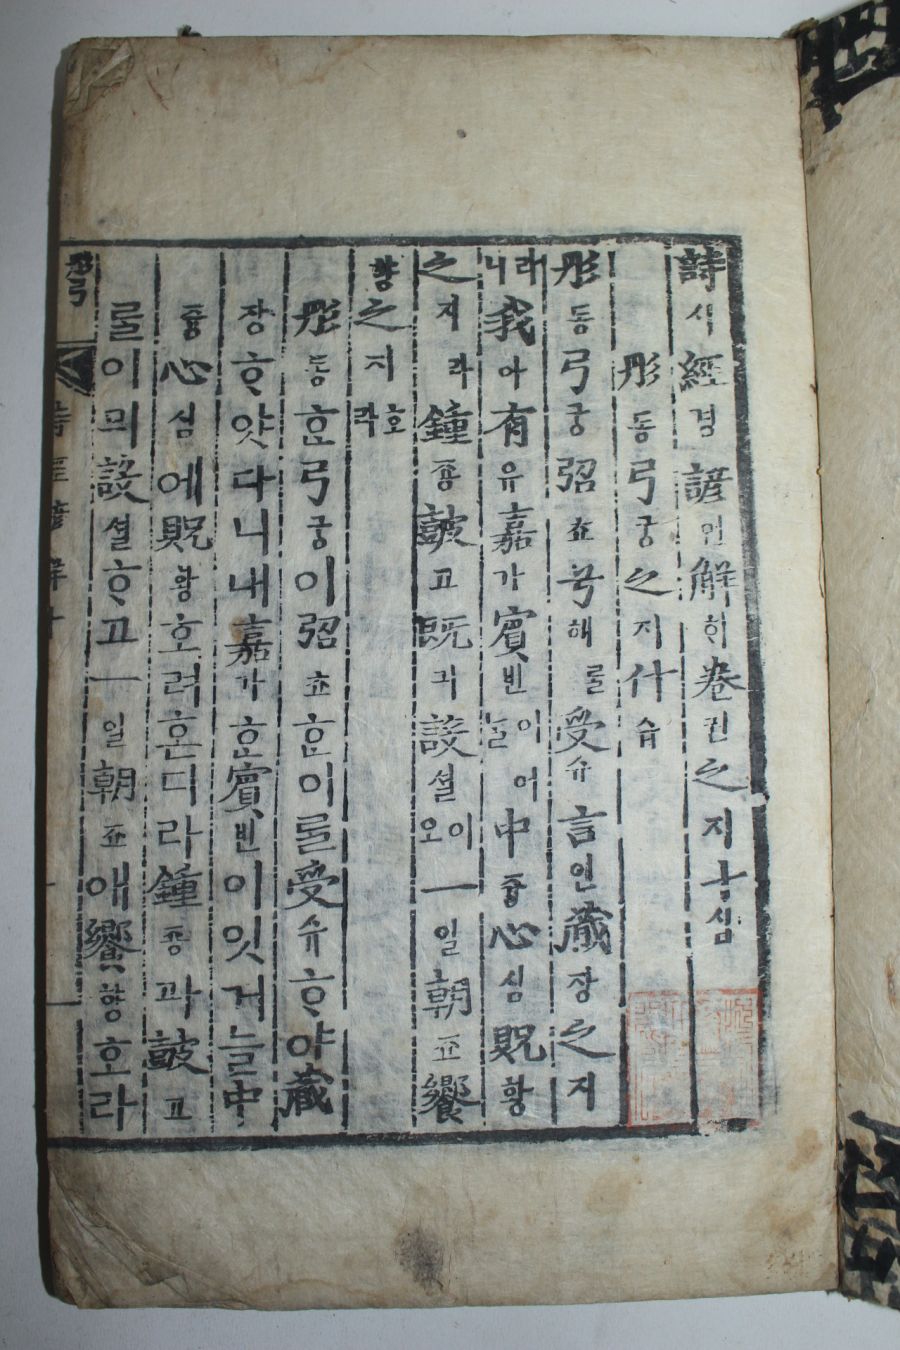 詩시經경諺언解ᄒᆡ卷권之지十십
彤동弓궁之지什습
彤동弓궁弨쵸兮혜ᄅᆞᆯ受슈言언藏장之지
래니我아有유嘉가賓빈이어ᄂᆞᆯ中듕心심貺황
之지락鐘죵鼓고旣긔設셜이오一일朝죠饗
향之지호락
彤동ᄒᆞᆫ弓궁이弨쵸ᄒᆞᆫ이ᄅᆞᆯ受슈ᄒᆞ야藏
장ᄒᆞ얏다니내嘉가ᄒᆞᆫ賓빈이잇거늘中
듕心심에貺황호려ᄒᆞᆫ디라鐘죵과鼓고
ᄅᆞᆯ이믜設셜ᄒᆞ고一일朝죠애饗향호라
彤弓 詩經諺解十 一